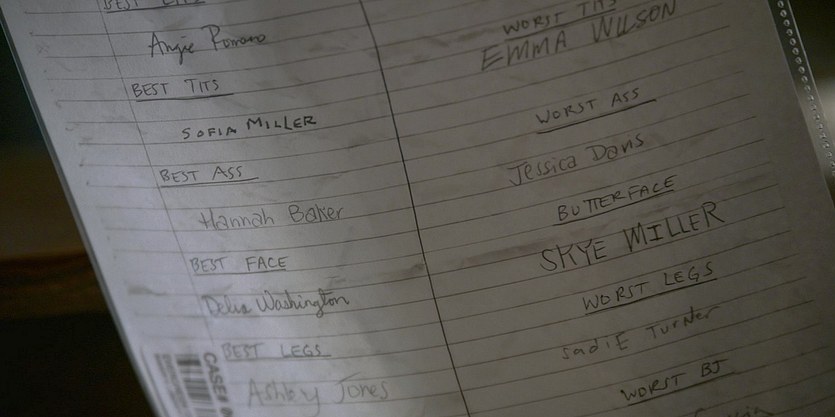 BEST
Angie Romero
BEST TITS
SOFIA MILLER
BEST ASS
Hannah Baker
BEST FACE
Delia Washington
BEST LEGS
Ashley Jones
WORST TITS
EMMA WILSON
WORST ASS
Jessica Davis
BUTTERFACE
SKYE MILLER
WORST LEGS
SadiE TurNer
WORST BJ
CASE#